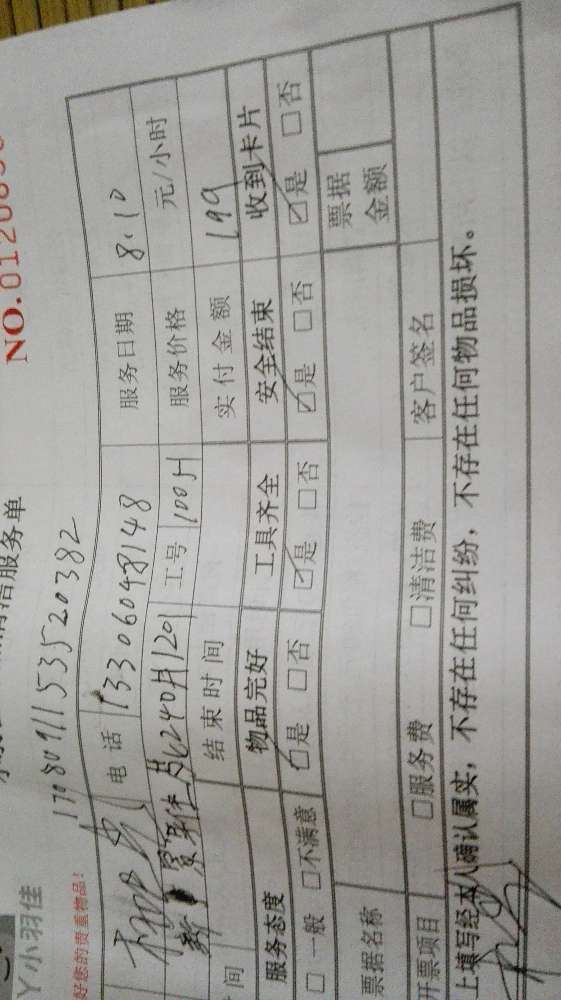 NO.0120890
清洁服务单
丫小羽佳
好您的贵重物品!
170809111535520382
电话 13306098148 服务日期 8.10
工号 100511 服务价格 元/小时
间 结束时间 实付金额 199
服务态度 物品完好 工具齐全 安全结束 收到卡片
□ 一般 □不满意 ☑是 □否 ☑是 □否 ☑是 □否 ☑是 □否
票据名称 票据金额
开票项目 □服务费 □清洁费 客户签名
上填写经本人确认属实,不存在任何纠纷,不存在任何物品损坏。